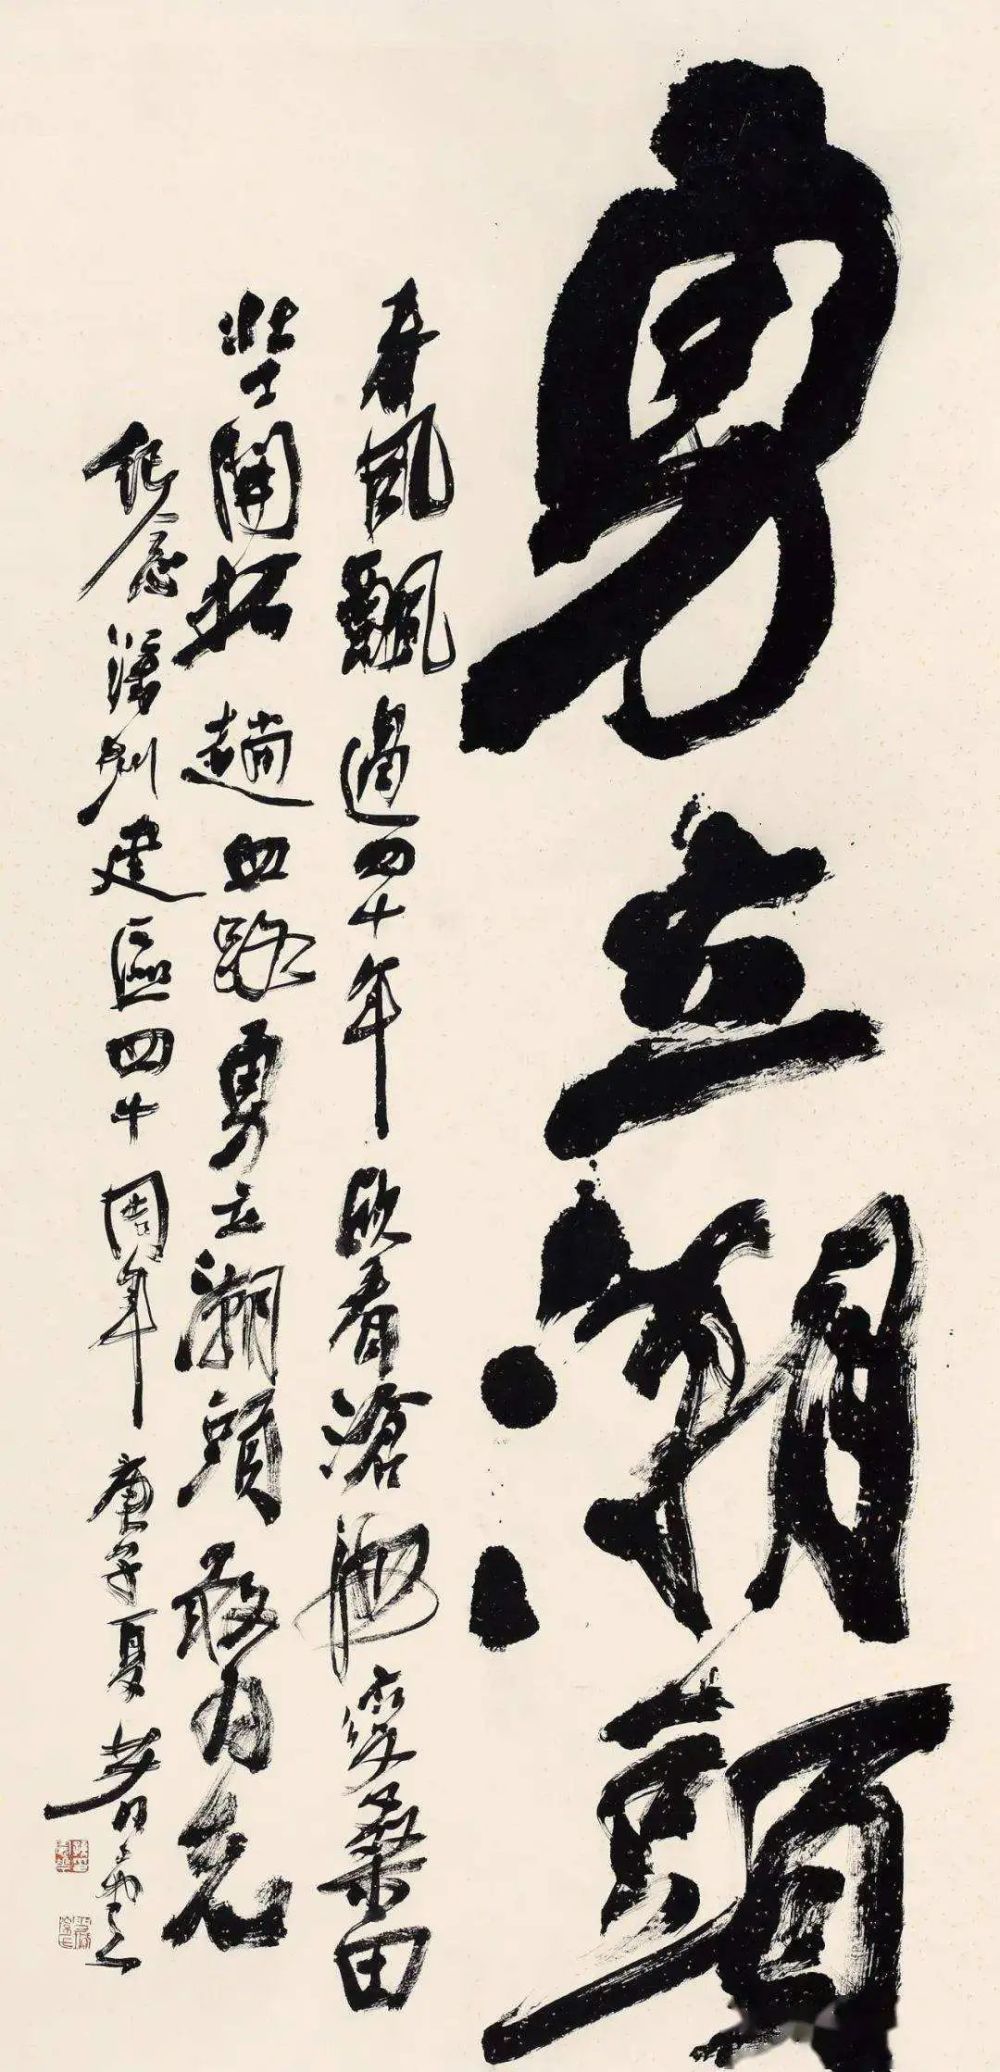 勇立潮頭
春風飄過四十年欣看滄海變桑田
開拓趟血路勇立潮頭敢為先
紀念深圳建區四十周年 庚子夏